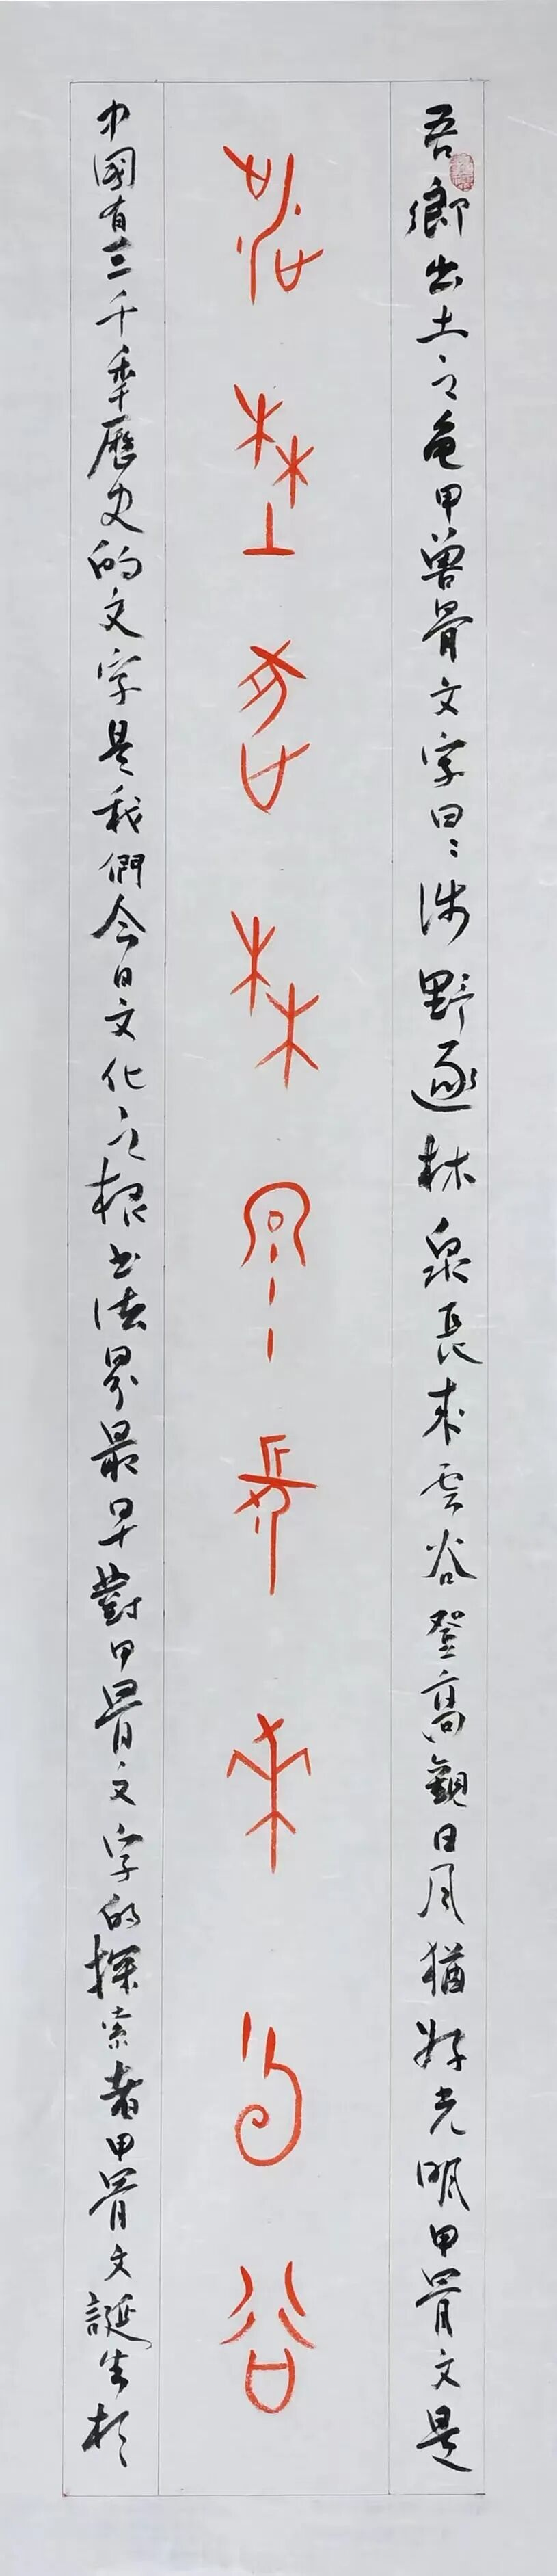 吾鄉出土之龟甲兽骨文字曰:涉野逐林泉長来雲谷登高觀日月猶好光明甲骨文是
涉野逐林泉長來雲谷
中國有三千年歷史的文字是我們今日文化之根书法界最早對甲骨文字的探索者甲骨文誕生於